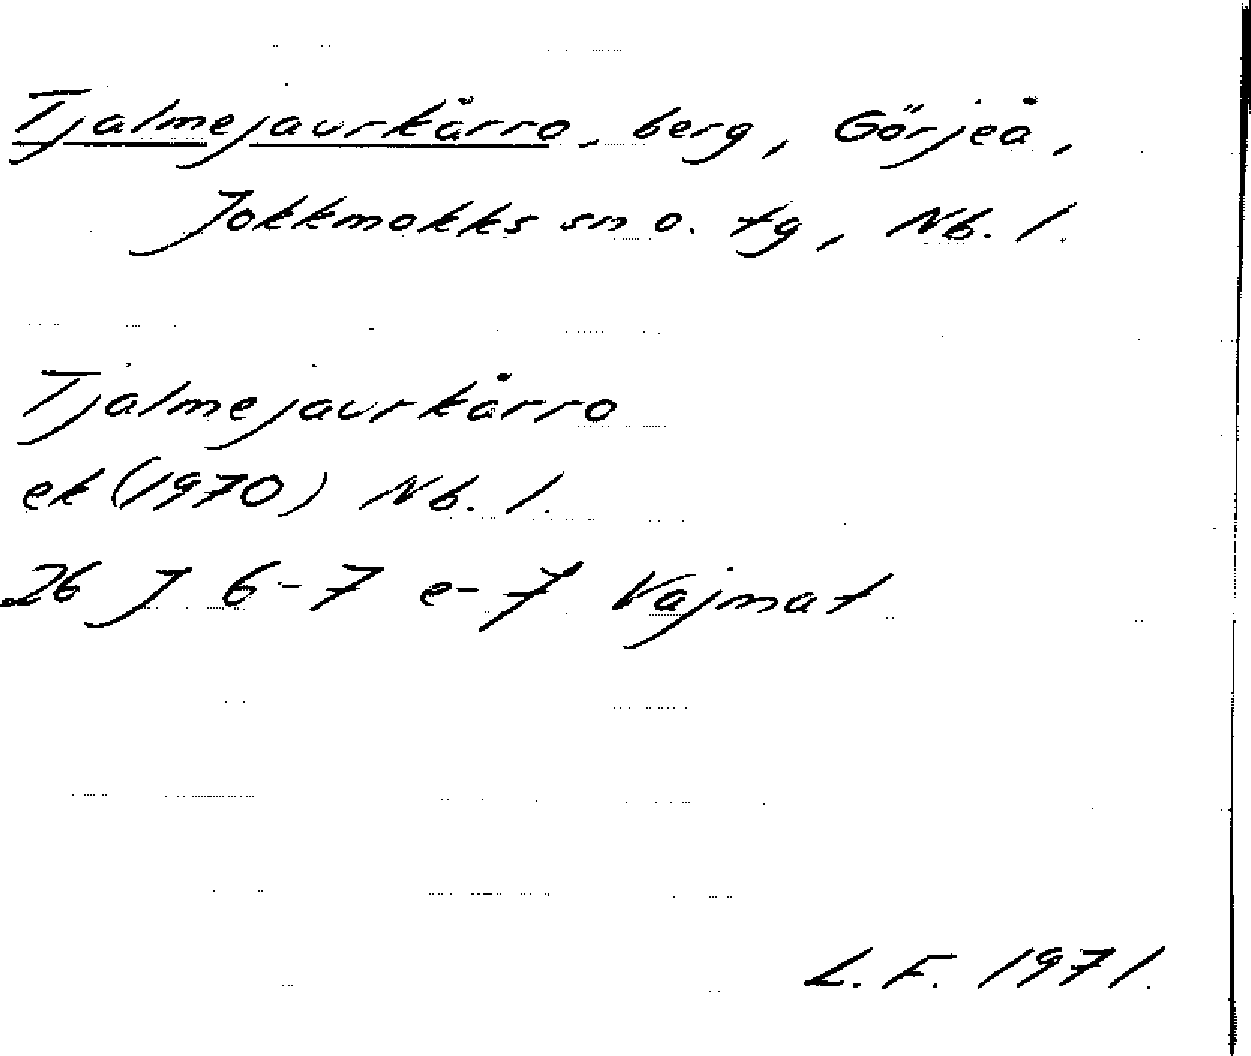 Tjalmejaurkårro, berg, Görjeå,
Jokkmokks sn o. tg, Nb. l.
Tjalmejaurkårro
ek (1970) Nb. l.
26 J 6-7 e-f Vajmat
L. F. 1971.